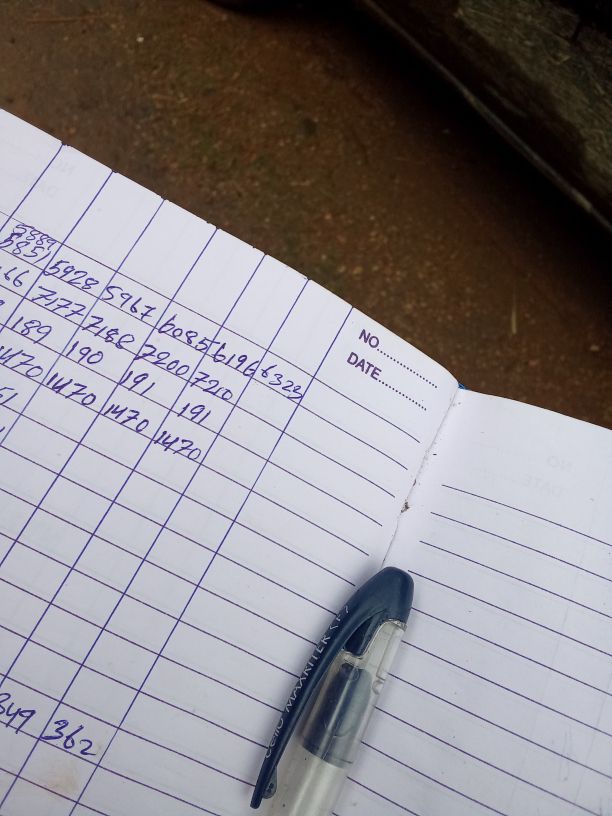 5851 5928 5967 6085 6196 6323
66 7177 7188 7200 7210
189 190 191 191
1470 1470 1470 1470
349 362
NO.
DATE
cello MAXRITER